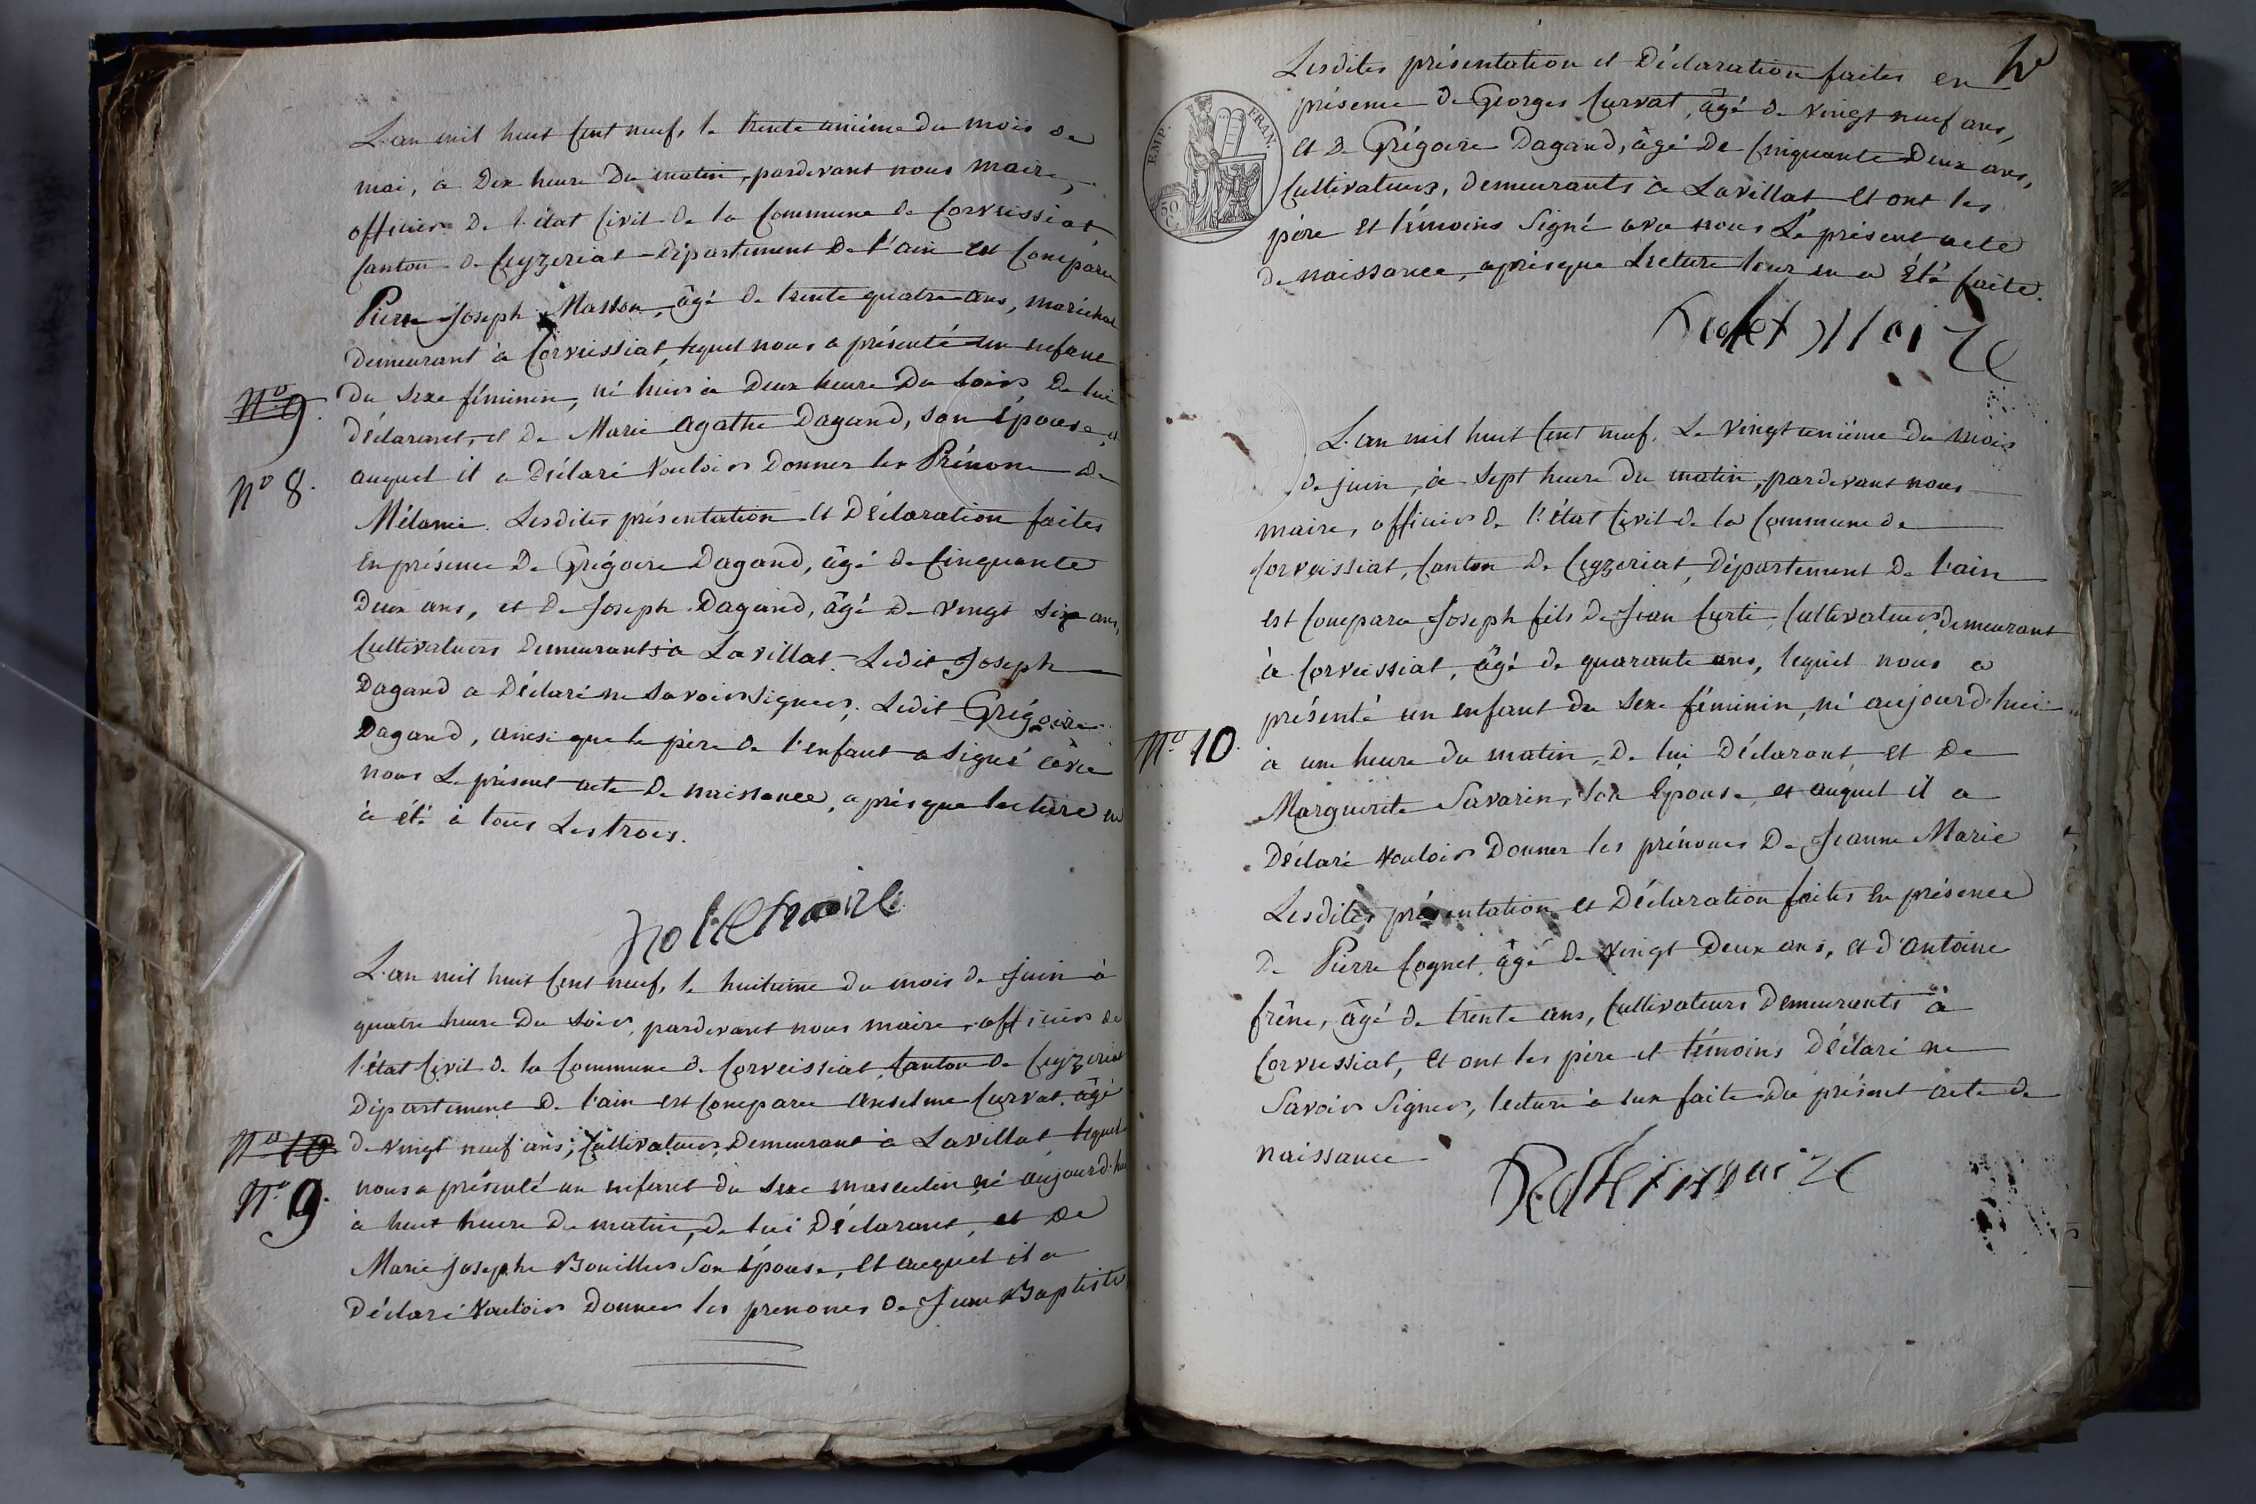 L'an mil huit Cent neuf, le trente uniéme du mois de
mai, à Dix heure Du matin, pardevant nous maire,
officier De l'état Civil De la Commune de Corveissiat
Canton de Ceyzeriat Département De l'ain est Comparu
Pierre Joseph Masson, âgé de trente quatre ans, maréchal
Demeurant à Corveissiat, lequel nous a présenté un enfant
Du sexe féminin, né hier à Deux heure Du soir, De lui
N.o 9.
déclarant, et De Marie Agathe Dagand, son épouse, et
auquel il a Déclaré Vouloir Donner les Prénom de
N.o 8.
Mélanie. Lesdites présentation et Déclaration faites
En présence De Grégoire Dagand, âgé de Cinquante
Deux ans, et De Joseph Dagand, âgé De vingt six ans,
Cultivateurs Demeurants à Lavillat. Ledit Joseph
Dagand a Déclaré ne savoir signer; Ledit Grégoire
Dagand, ainsi que le père de l'enfant a signé avec
nous Le présent acte De naissance, après que lecture en
à été à tous Les trois.
maire
L'an mil huit Cent neuf, le huitieme du mois de Juin à
quatre heure Du soir, pardevant nous maire, officier de
l'état Civil de la Commune de Corveissiat, Canton de Ceyzeriat
Département De l'ain est Comparu Anselme Curvat, âgé
N.o 10
De vingt neuf ans, Cultivateur, Demeurant à Lavillat lequel
N.o 9.
nous a présenté un enfant du sexe masculin né aujourd'hui
à huit heure De matin, De lui Déclarant, et De
Marie Josephe Bouillier Son épouse, Et auquel il a
Déclaré Vouloir Donner les prenoms de Jean Baptiste
EMP. FRAN.
50 C.
Lesdites présentation et Déclaration faites en
présence De Georges Curvat, âgé de vingt neuf ans,
et De Grégoire Dagand, âgé De Cinquante Deux ans,
Cultivateurs, Demeurants à Lavillat Et ont les
père et témoins Signé avec nous Le présent acte
de naissance, après que Lecture leur en a été faite.
L'an mil huit Cent neuf, Le vingt uniéme du mois
de juin, à sept heure du matin, pardevant nous
maire, officier de l'état Civil de la Commune de
Corveissiat, Canton De Ceyzeriat, Département De l'ain
est Comparu Joseph fils De Jean Curti, Cultivateur, demeurant
à Corveissiat, âgé de quarante ans, lequel nous a
présenté un enfant du sexe féminin, né aujourd'hui
N.o 10.
à une heure du matin, De lui Déclarant, et De
Marguerite Savarin, son épouse, et auquel il a
Déclaré Vouloir Donner les prénoms De Jeanne Marie
Lesdites présentation et Déclaration faites En présence
De Pierre Cognet, âgé De vingt Deux ans, et d'Antoine
frêne, âgé de trente ans, Cultivateurs Demeurants à
Corveissiat, Et ont les père et témoins Déclaré ne
Savoir Signer, lecture à eux faite Du présent acte de
naissance